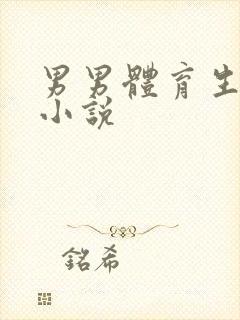 男男體育生
小説
銘希